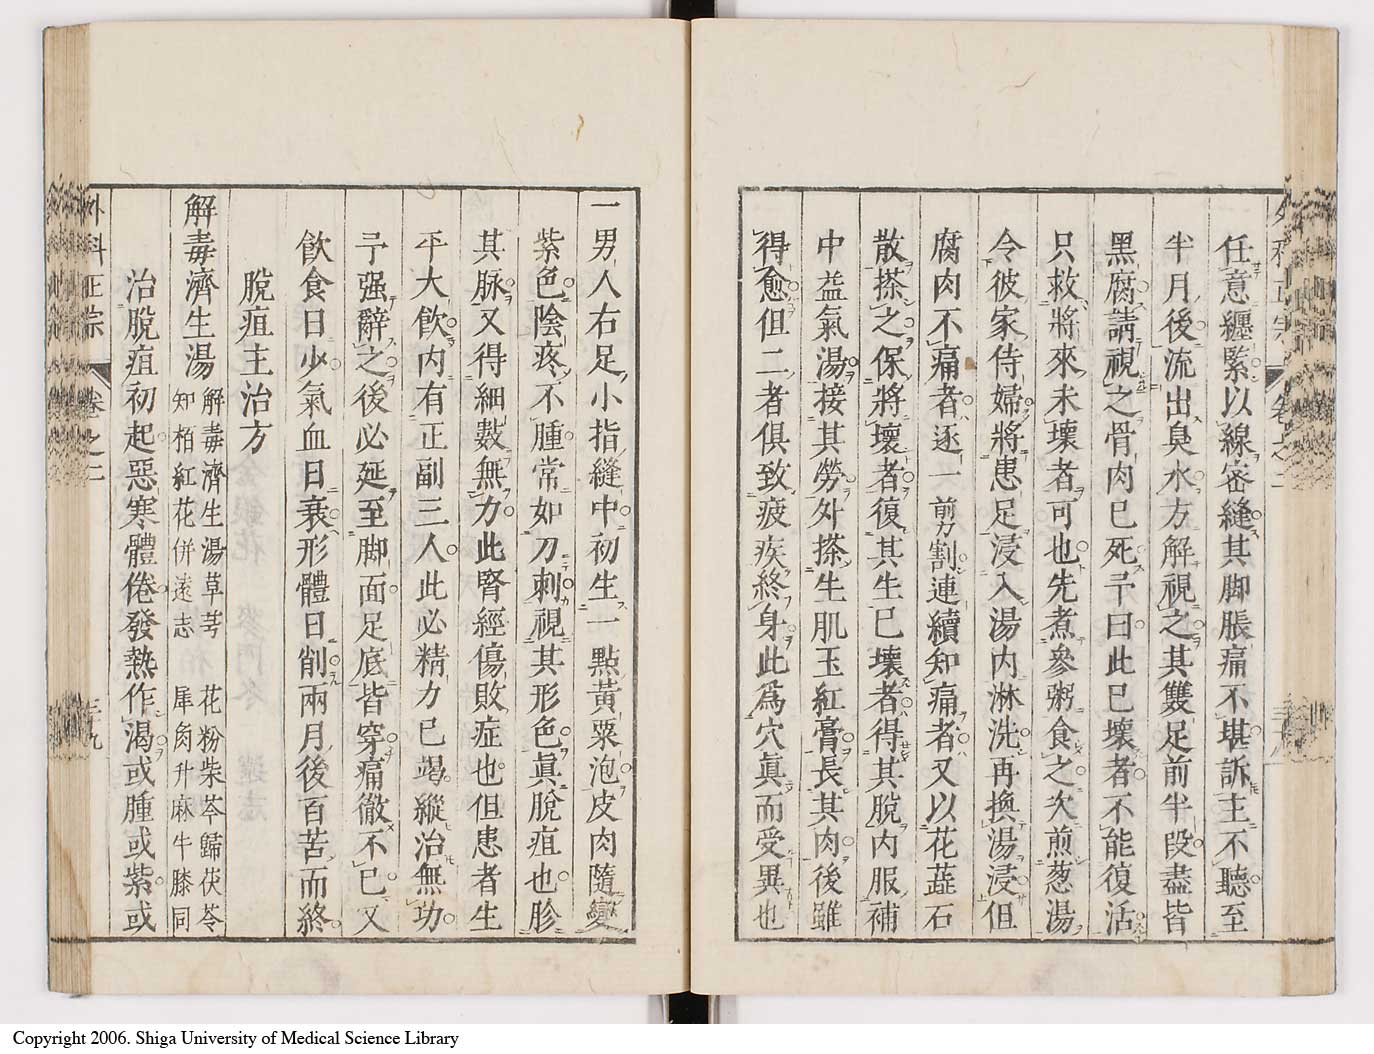 任意纏緊以線密縫其脚脹痛不堪訴主不聽至
半月後流出臭水方解視之其雙足前半段盡皆
黑腐請視之骨肉已死予曰此已壞者不能復活
只救將來未壞者可也先煮參粥食之次煎葱湯
令彼家侍婦將患足浸入湯內淋洗再換湯浸但
腐肉不痛者逐一前刀割連續知痛者又以花蕋石
散搽之保將壞者復其生已壞者得其脫內服補
中益氣湯接其勞外搽生肌玉紅膏長其肉後雖
得愈但二者俱致疲疾終身此爲穴眞而受異也
一男人右足小指縫中初生一點黃粟泡皮肉隨變
紫色陰疼不腫常如刀刺視其形色眞脫疽也胗
其脉又得細數無力此腎經傷敗症也但患者生
平大飮內有正副三人此必精力已竭縱治無功
予强辭之後必延至脚面足底皆穿痛徹不已又
飮食日少氣血日衰形體日削兩月後百苦而終
脫疽主治方
解毒濟生湯 解毒濟生湯草芎 花粉柴芩歸茯苓
知栢紅花併遠志 犀角升麻牛膝同
治脫疽初起惡寒體倦發熱作渴或腫或紫或
外科正宗 卷之二 三十九
Copyright 2006. Shiga University of Medical Science Library